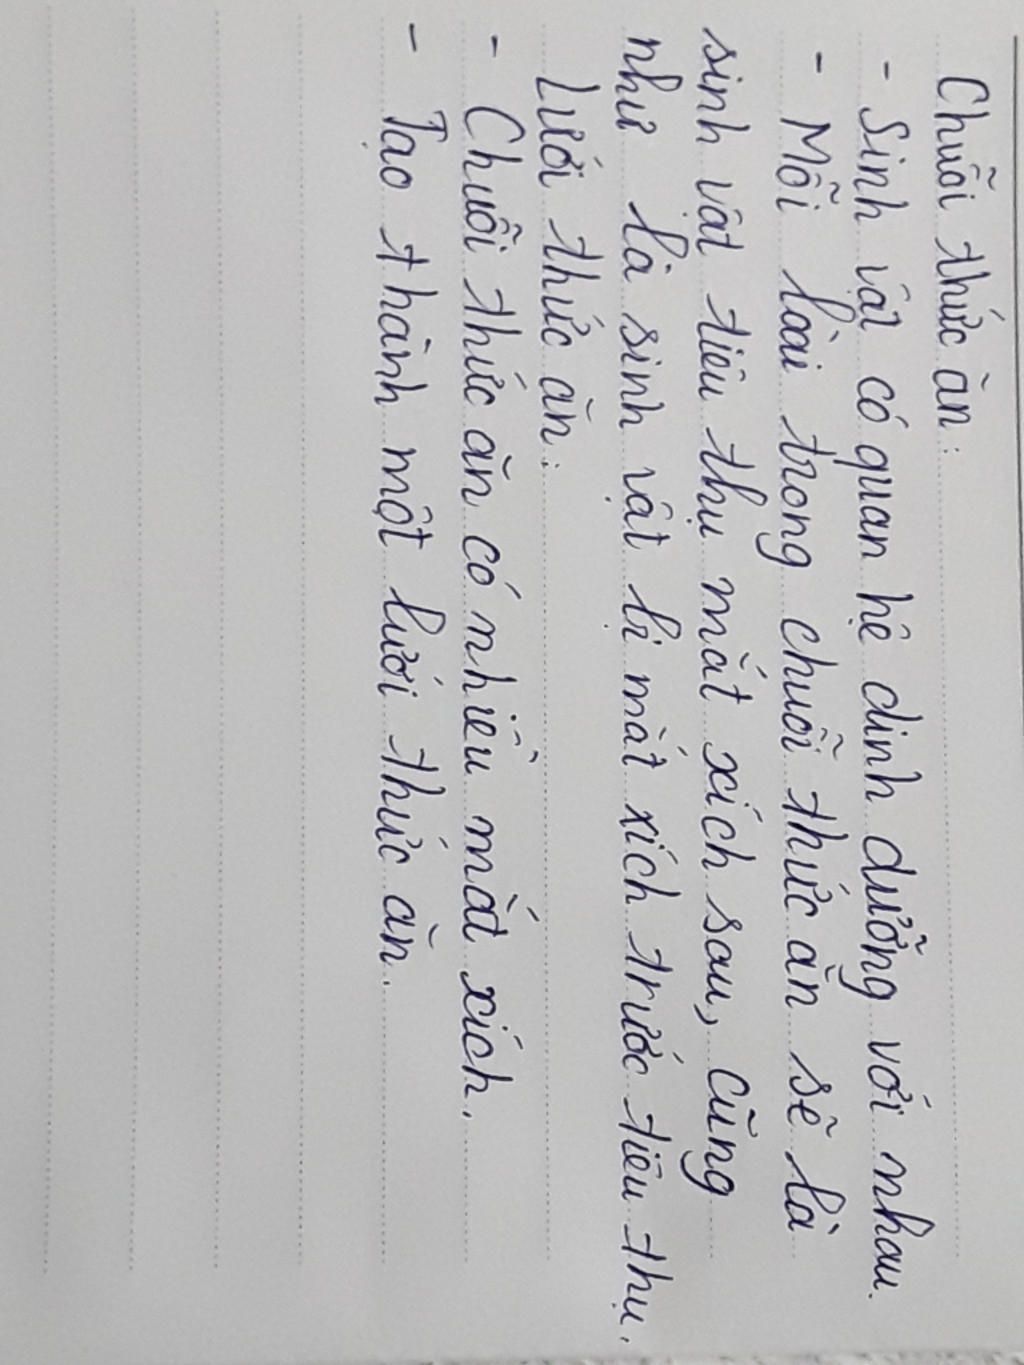 Chuỗi thức ăn:
- Sinh vật có quan hệ dinh dưỡng với nhau.
- Mỗi loài trong chuỗi thức ăn sẽ là
sinh vật tiêu thụ mắt xích sau, cũng
như là sinh vật bị mắt xích trước tiêu thụ.
Lưới thức ăn:
- Chuỗi thức ăn có nhiều mắt xích.
- Tạo thành một lưới thức ăn.